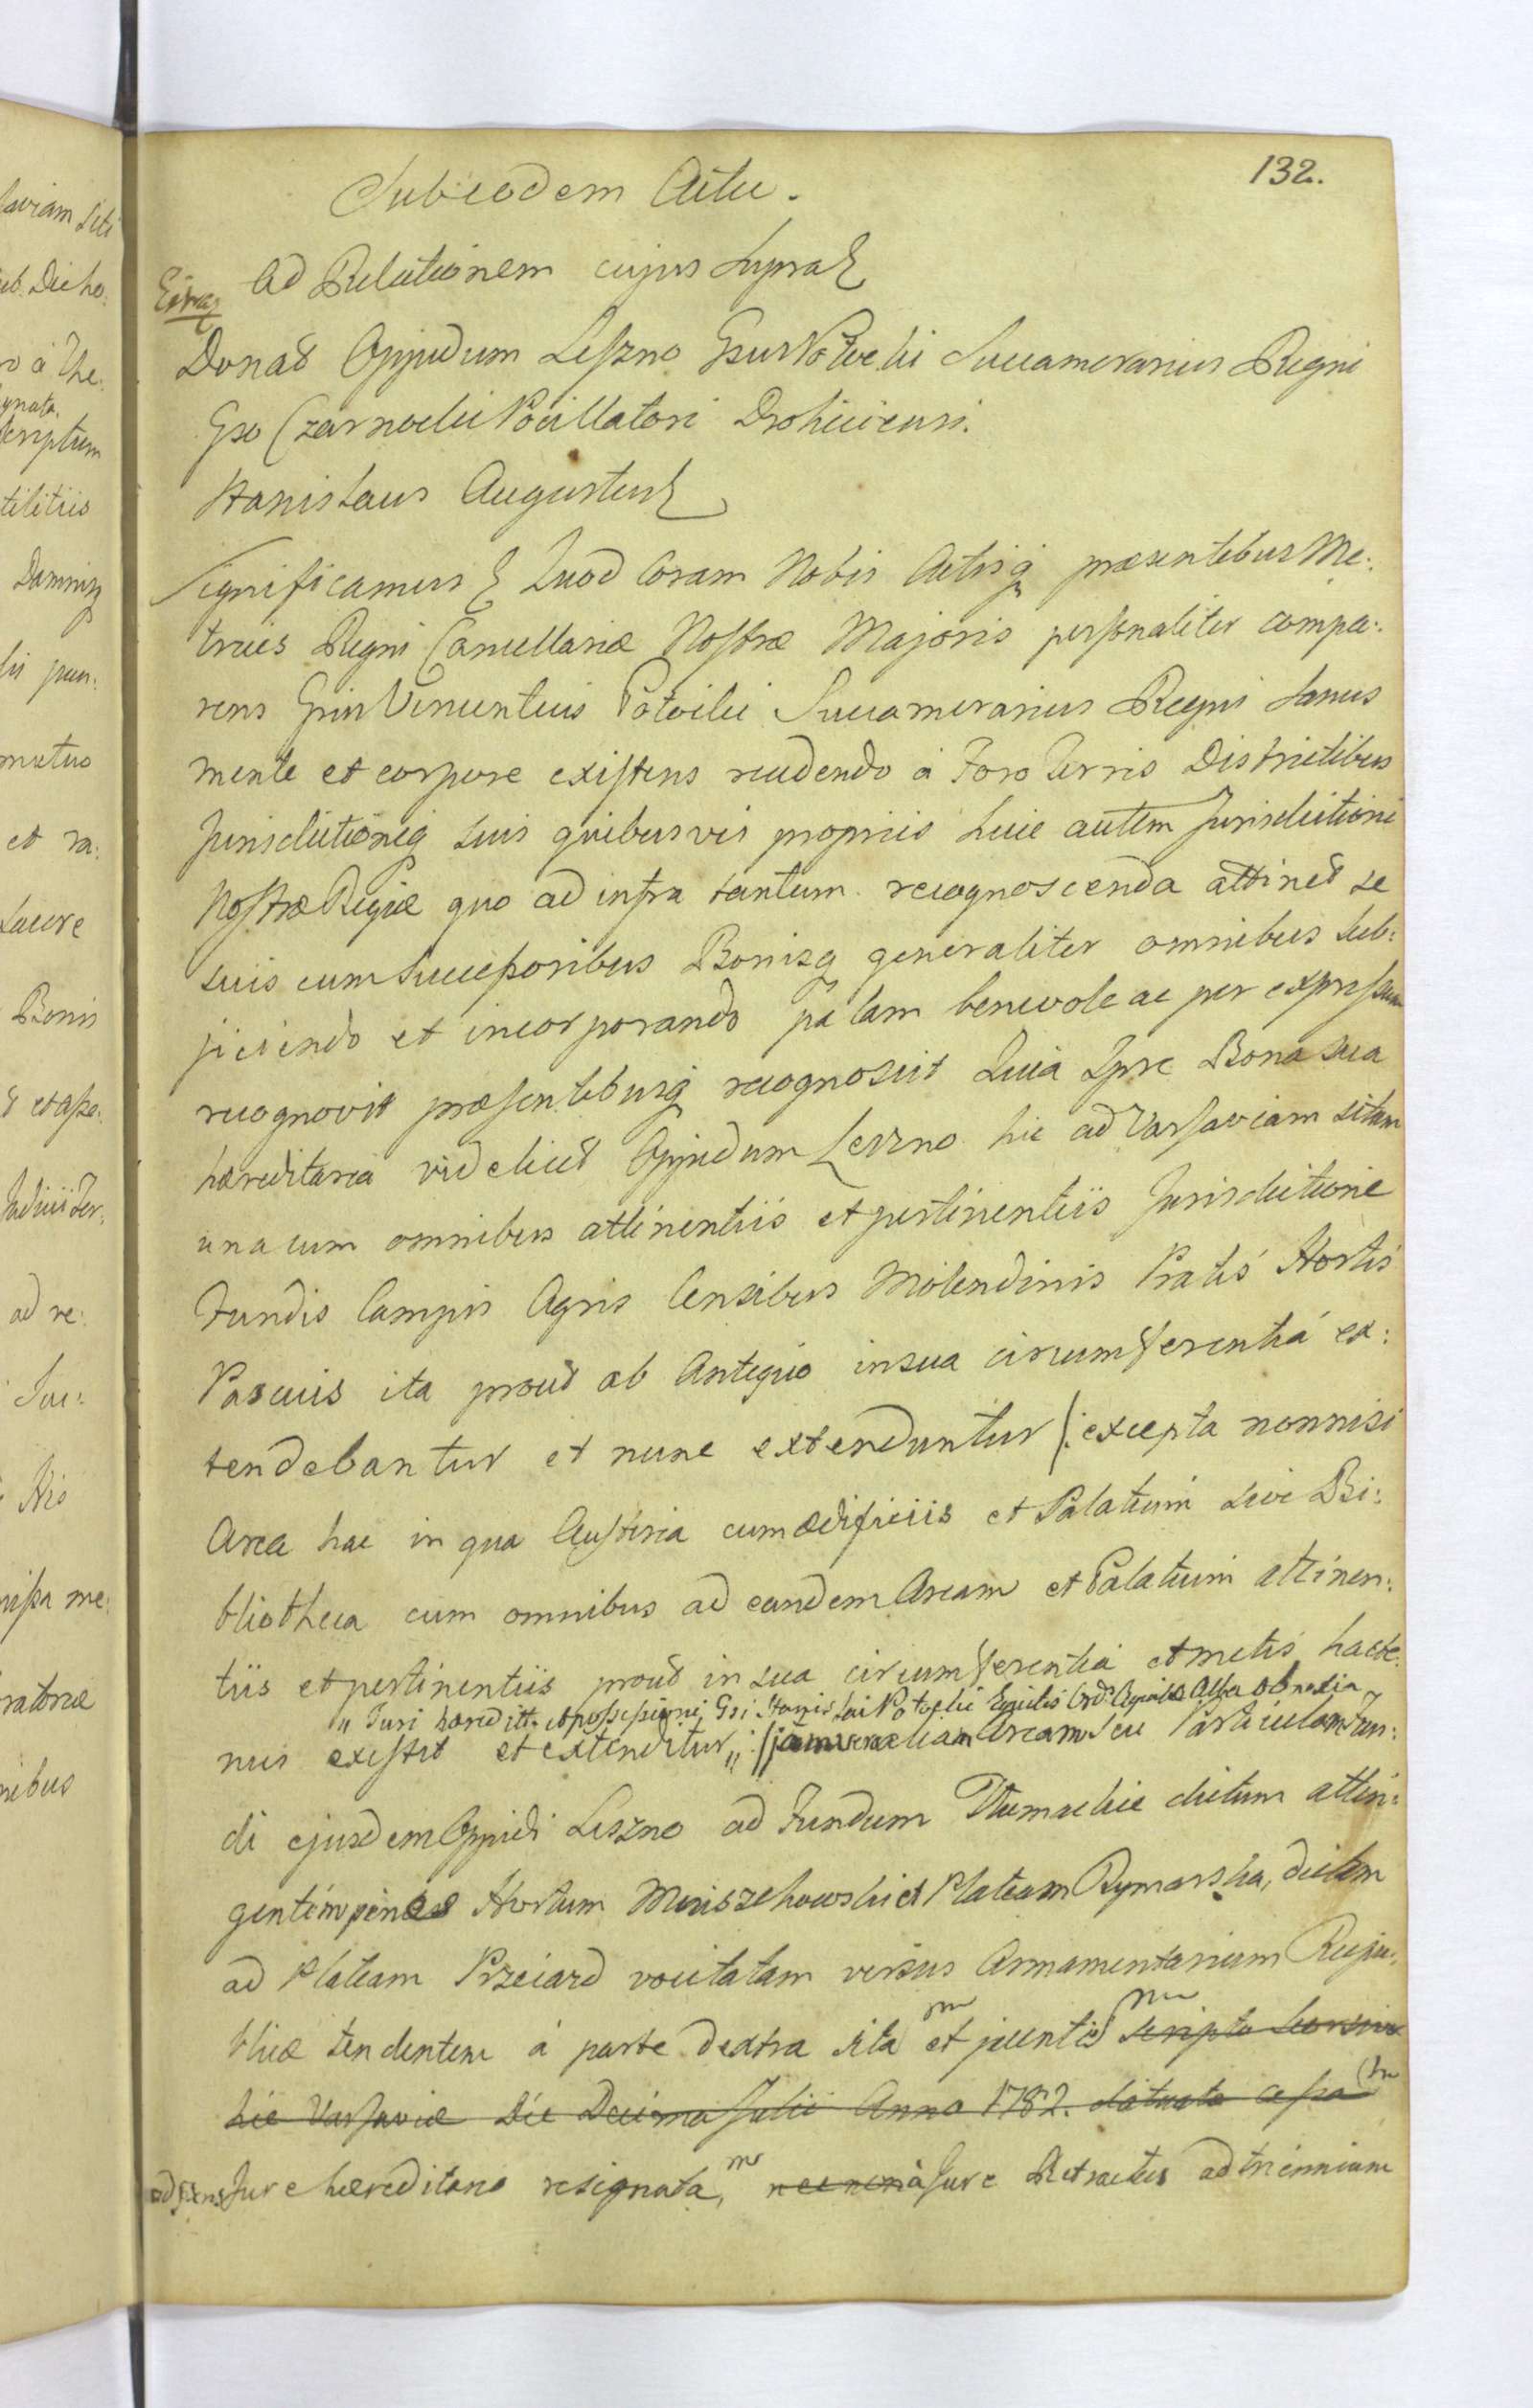 132.
Sub eodem Actu.
Ad Relationem cujus supra
Donat Oppidum Leszno Gsus Potocki Succamerarius Regni
Gso Czarnocki Pocillatori Drohicensi.
Stanislaus Augustus
Significamus Quod Coram Nobis Actisq praesentibus Me:
trices Regni Cancellariæ Nostræ Majoris personaliter compa:
rens Gsus Vincentius Potocki Succamerarius Regni sanus
mente et corpore existens recedendo à Foro Terris Districtibus
Jurisdictioneq suis quibusvis propriis huic autem Jurisdictioni
Nostræ Regiæ quo ad infra tantum recognoscenda attinet se
suis cum Successoribus Bonisq generaliter omnibus sub:
jiciendo et incorporando palam benevole ac per expressum
recognovit præsentibusq recognoscit Quia Ipse Bona sua
hæreditaria videlicet Oppidum Leszno hic ad Varsaviam situm
una cum omnibus attinentiis et pertinentiis Jurisdictione
Fundis Campis Agris Censibus Molendinis Pratis Hortis
Pascuis ita prout ab Antiquo in sua circumferentiá ex:
tendebantur et nunc extenduntur /: excepta nonnisi
Area hac in qua Austeria cum ædificiis et Palatium sive Bi:
bliotheca cum omnibus ad eandem Aream et Palatium attinen:
tiis et pertinentiis prout in sua circumferentia et metis hacte:
" Juri hæredit. et possessioni Gsi Stanislai Potocki Equitis Ord. Aquilæ Albæ obnoxia
nus existit et extenditur " :/ Aream seu Particulam Fun:
di ejusdem Oppidi Leszno ad Fundum Tłumackie dictum attin:
gentem penes Hortum Mniszchowski et Plateam Rymarska, dictam
ad Plateam Przeiazd vocitatam versus Armamentarium Reipu:
blicæ tendentem á parte dextra sita et jacentis scripto seorsivo
hic Varsaviæ Die Decima Julii Anno 1782.
Jure hæreditario resignata, necnon à Jure Retractus ad triennium